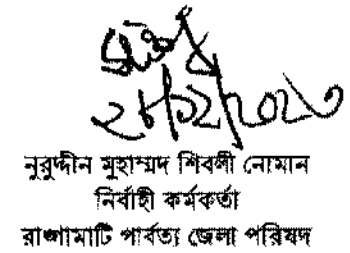 ২৮/১২/২০২৩
নুরুদ্দীন মুহাম্মদ শিবলী নোমান
নির্বাহী কর্মকর্তা
রাঙ্গামাটি পার্বত্য জেলা পরিষদ